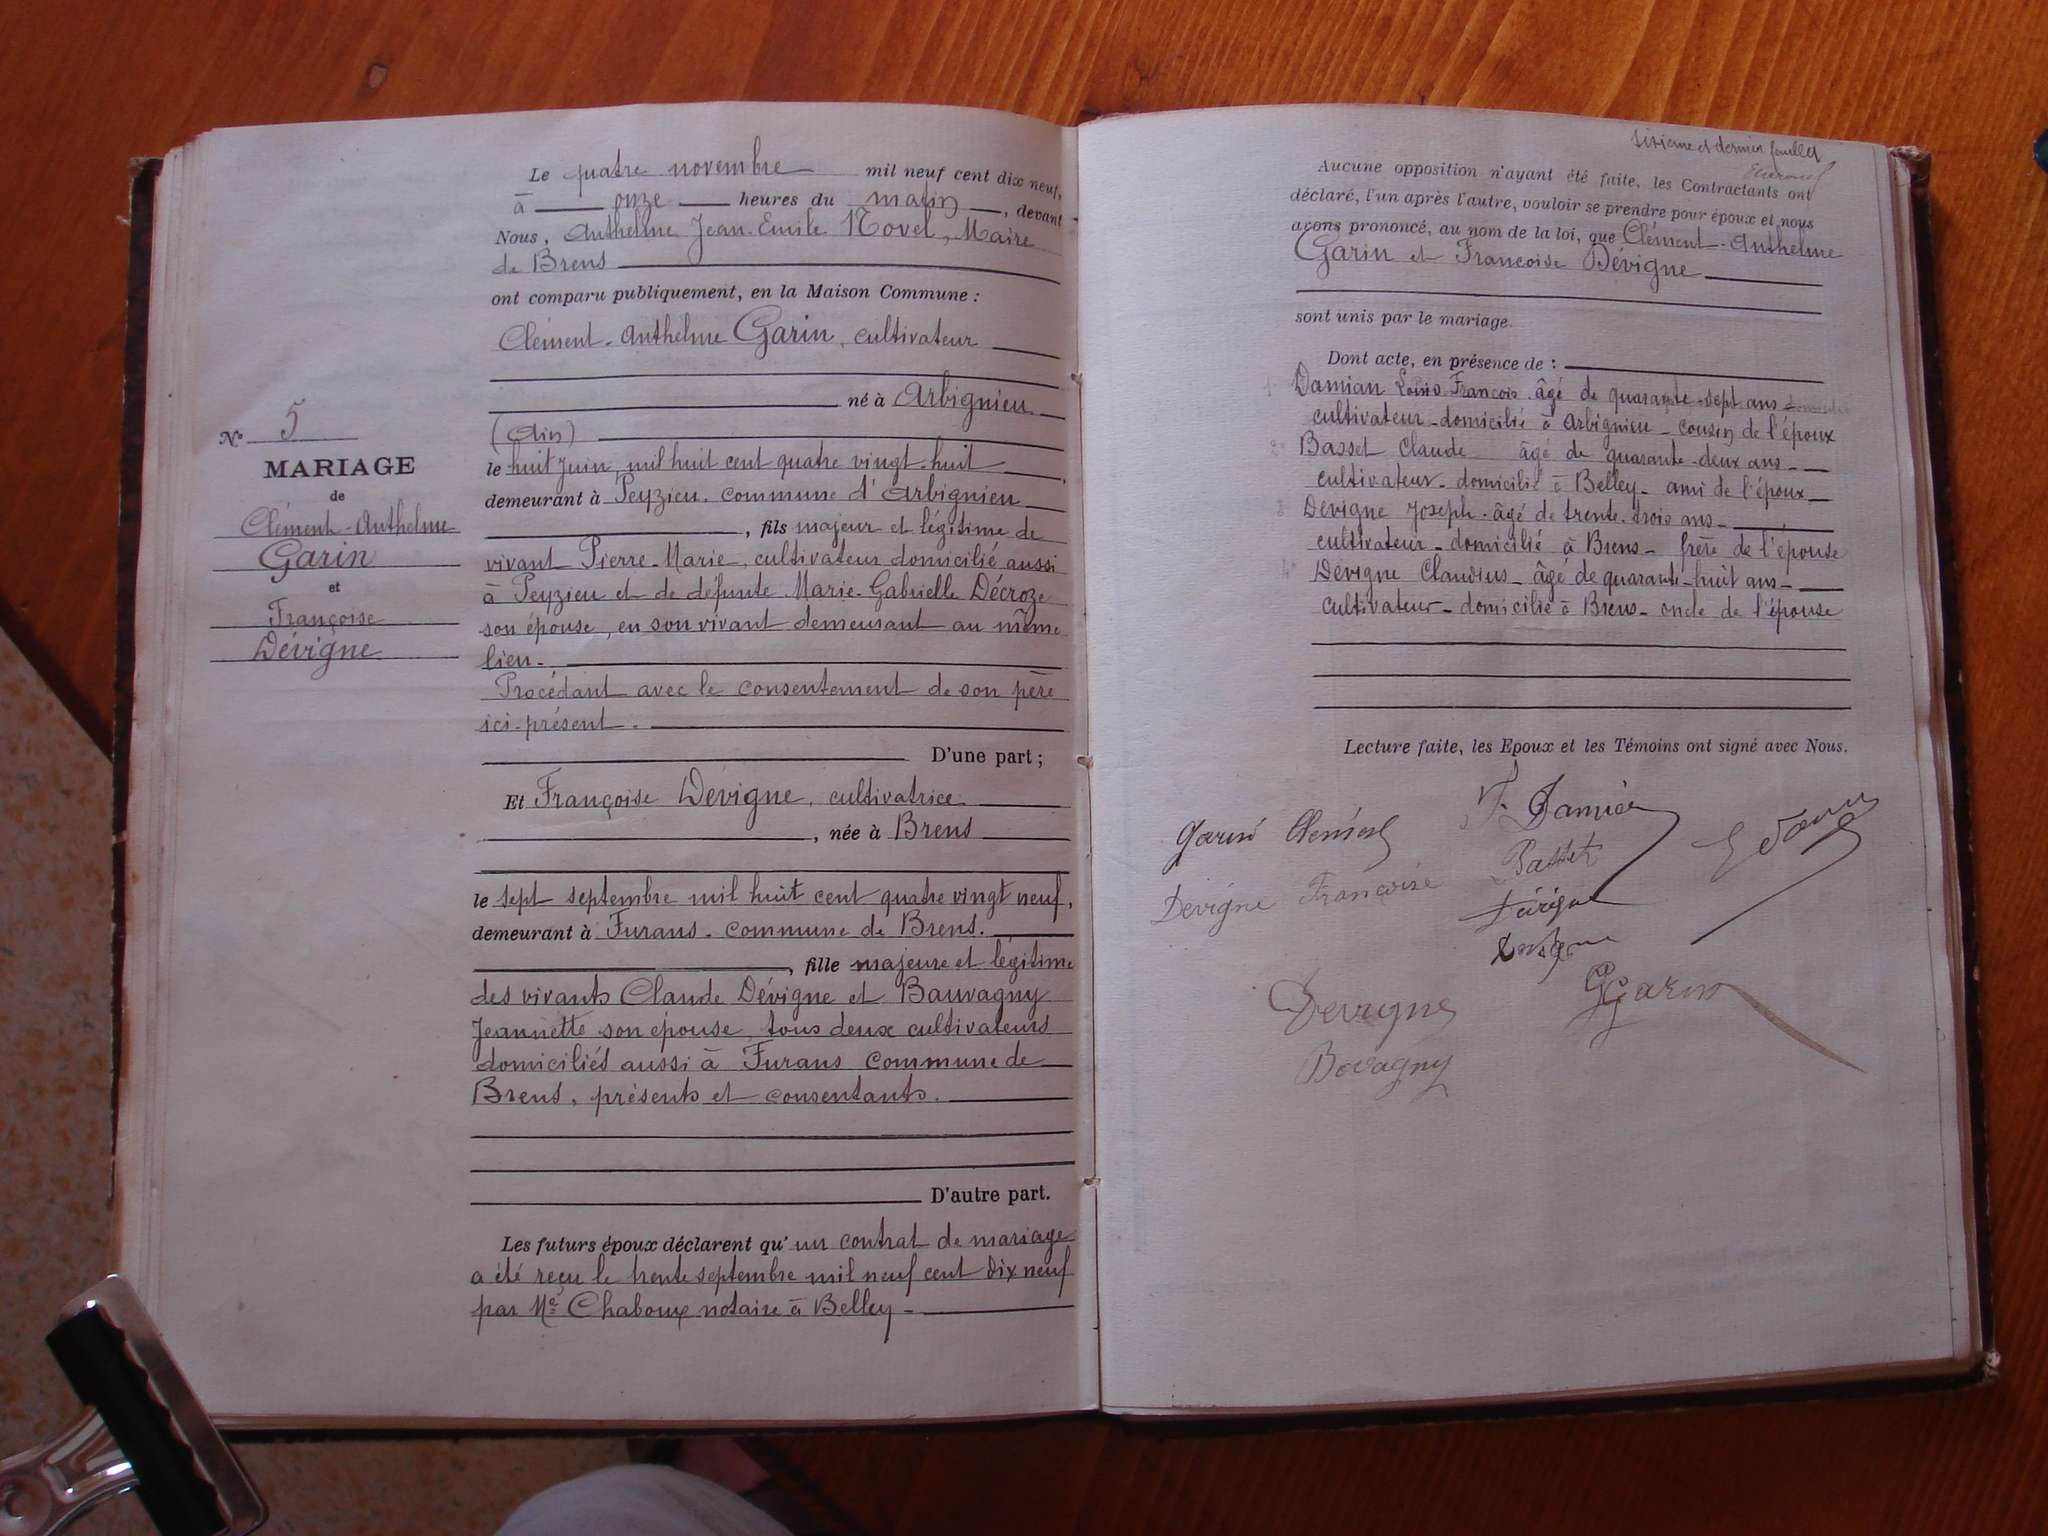 Nº 5
MARIAGE
de
Clément-Anthelme
Garin
et
Françoise
Dévigne
Le quatre novembre mil neuf cent dix neuf,
à onze heures du matin, devant
Nous, Anthelme Jean-Emile Novel, Maire
de Brens
ont comparu publiquement, en la Maison Commune :
Clément-Anthelme Garin, cultivateur
né à Arbignieu
(Ain)
le huit Juin mil huit cent quatre vingt-huit,
demeurant à Peyzieu, commune d'Arbignieu
, fils majeur et légitime de
vivant Pierre-Marie, cultivateur domicilié aussi
à Peyzieu et de défunte Marie-Gabrielle Décroze
son épouse, en son vivant demeurant au même
lieu.
Procédant avec le consentement de son père
ici-présent.
D'une part ;
Et Françoise Dévigne, cultivatrice
, née à Brens
le sept septembre mil huit cent quatre vingt neuf,
demeurant à Furans, commune de Brens.
, fille majeure et légitime
des vivants Claude Dévigne et Bauvagny
Jeannette son épouse, tous deux cultivateurs
domiciliés aussi à Furans commune de
Brens, présents et consentants.
D'autre part.
Les futurs époux déclarent qu'un contrat de mariage
a été reçu le trente septembre mil neuf cent dix neuf
par Me Chaboux notaire à Belley -
sixième et dernier feuillet
Aucune opposition n'ayant été faite, les Contractants ont
déclaré, l'un après l'autre, vouloir se prendre pour époux et nous
avons prononcé, au nom de la loi, que Clément-Anthelme
Garin et Françoise Dévigne
sont unis par le mariage.
Dont acte, en présence de :
1º Damian Louis François âgé de quarante-sept ans
cultivateur - domicilié à Arbignieu - cousin de l'époux
2º Basset Claude âgé de quarante-deux ans -
cultivateur - domicilié à Belley - ami de l'époux
3º Dévigne Joseph - âgé de trente-trois ans -
cultivateur - domicilié à Brens - frère de l'épouse
4º Dévigne Claudius - âgé de quarante-huit ans -
cultivateur - domicilié à Brens - oncle de l'épouse
Lecture faite, les Epoux et les Témoins ont signé avec Nous.
Garin Clément
Dévigne Françoise
Damian
Basset
Dévigne
Devigne
Garin
Bovagny